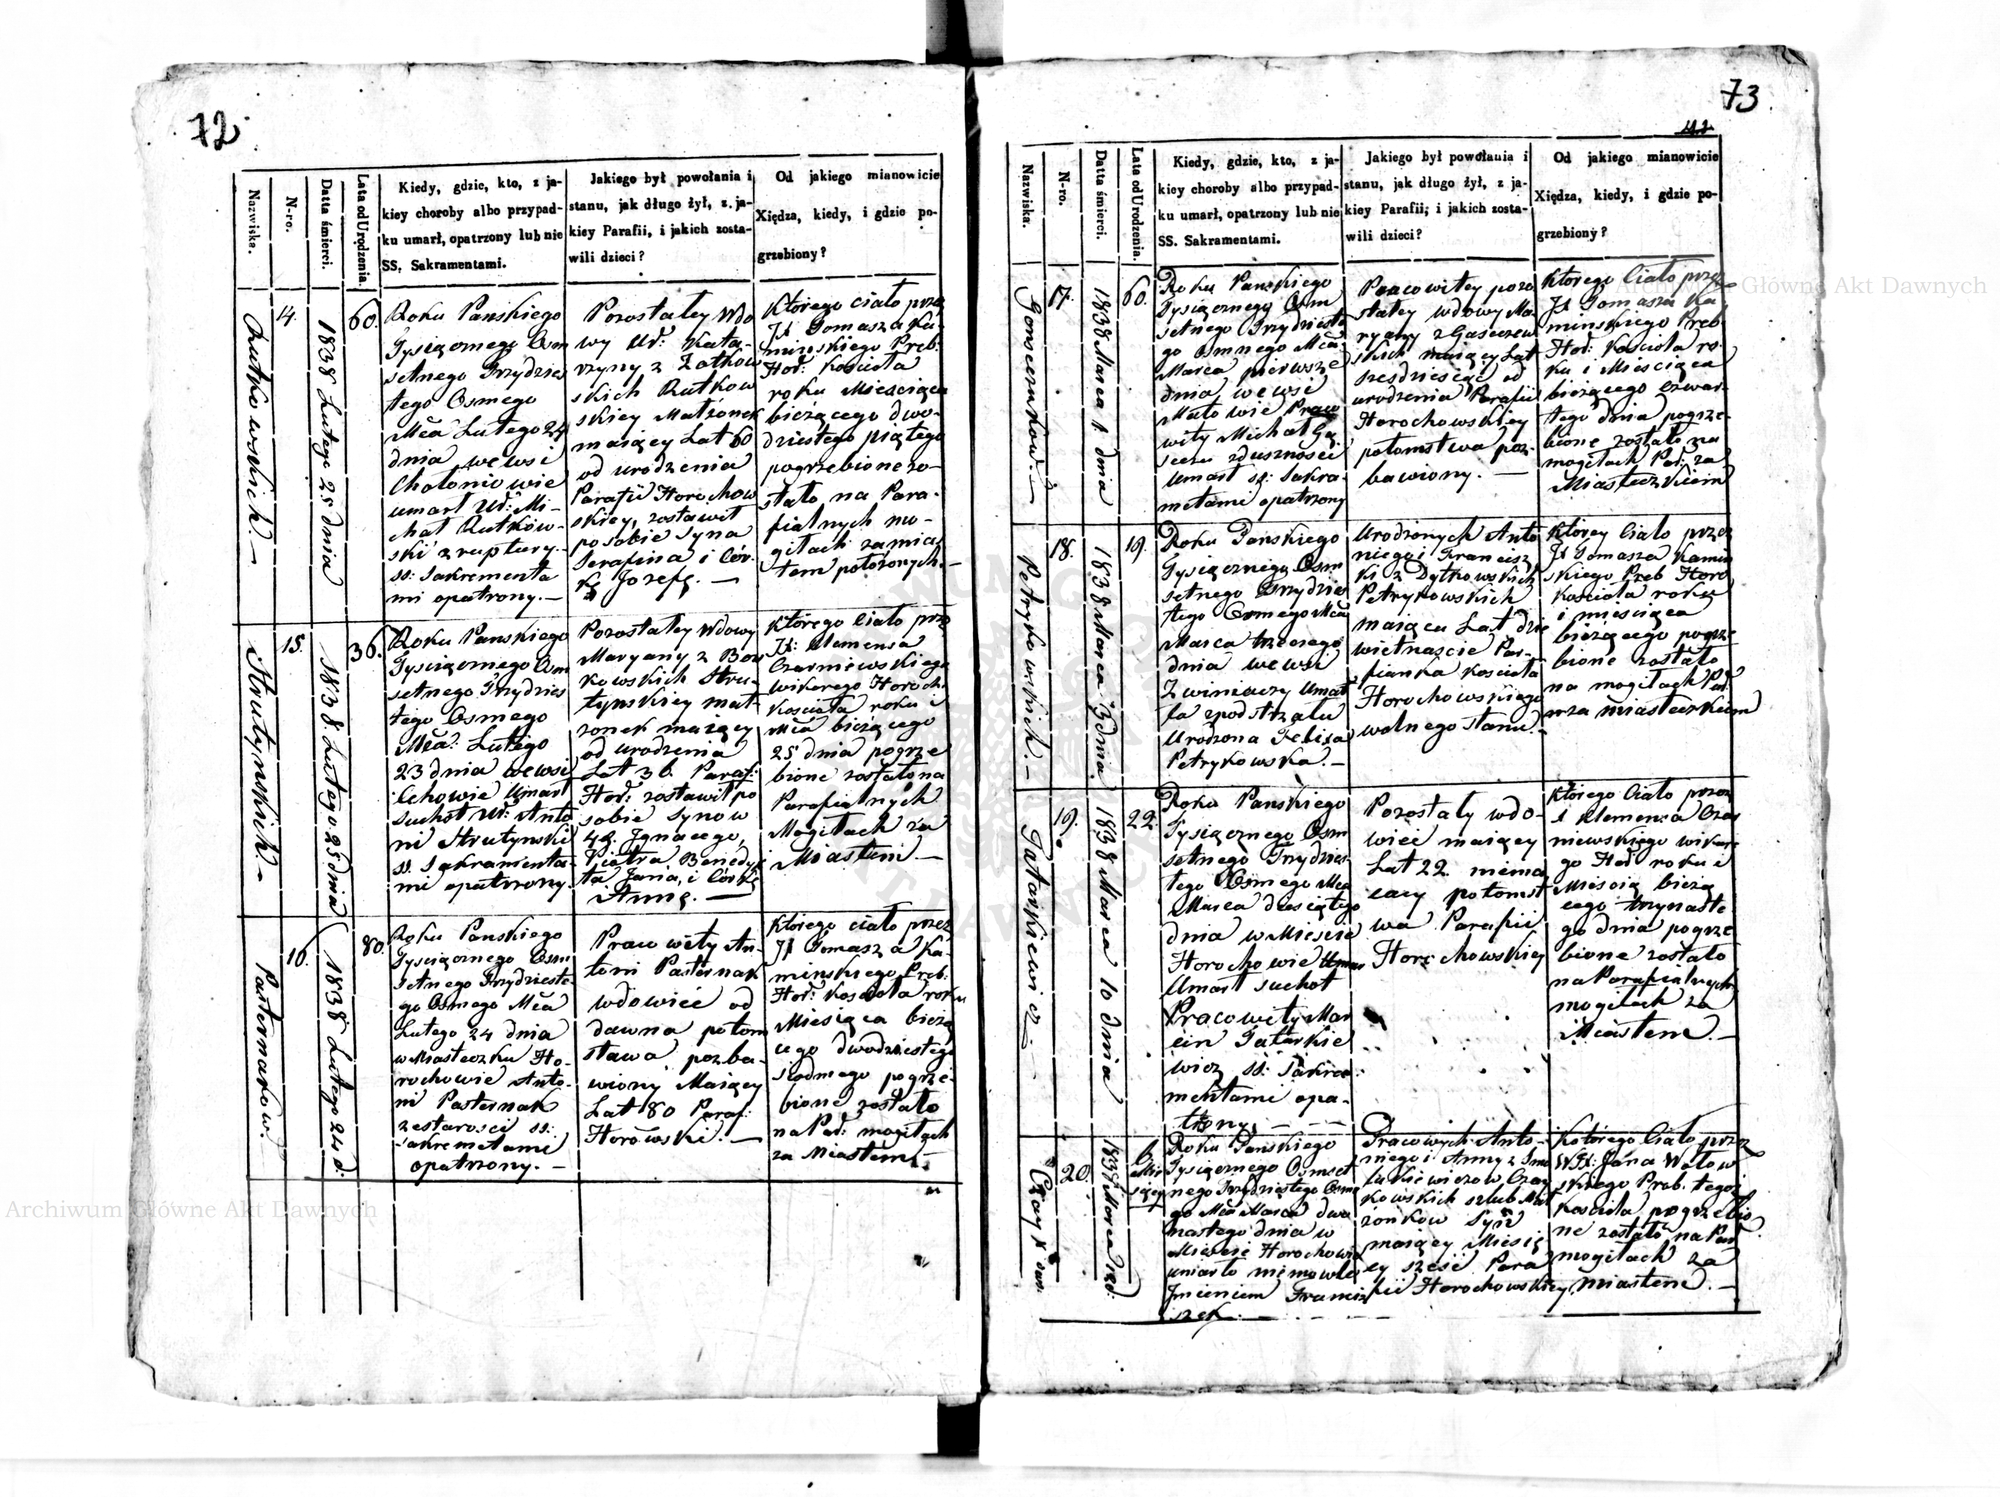 72
Nazwiska.
N-ro.
Datta śmierci.
Lata od Urodzenia.
Kiedy, gdzie, kto, z ja-
kiey choroby albo przypad-
ku umarł, opatrzony lub nie
SS. Sakramentami.
Jakiego był powołania i
stanu, jak długo żył, z ja-
kiey Parafii, i jakich zosta-
wili dzieci?
Od jakiego mianowicie
Xiędza, kiedy, i gdzie po-
grzebiony?
Rutkowskich.—
14.
1838 Lutego 25 dnia
60.
Roku Panskiego
Tysiącznego Osm
setnego Trzydzies
tego Osmego
Mca Lutego 24
dnia we wsi
Chołoniowie
umarł Ur: Mi-
chał Rutkow-
ski z ruptury.—
ss: Sakramenta
mi opatrony.—
Pozostałey Wdo
wy Ur: Kata-
rzyny z Zatkow
skich Rutkow
skiey Małżonek
maiący Lat 60
od urodzenia
Parafii Horochow
skiey, zostawił
po sobie Syna
Serafina i Cór-
kę Jozefę.—
Ktorego ciało przez
JX Tomasza Ka-
minskiego Preb:
Hor: Kościoła
roku Miesciąca
bieżącego dwo-
dziestego piątego
pogrzebione zo-
stało na Para-
fialnych mo-
giłach za mias
tem położonych.—
Strutynskich.—
15.
1838. Lutego 25 dnia
36.
Roku Panskiego
Tysiącznego Osm
setnego Trzydzies
tego Osmego
Mca: Lutego
23 dnia we wsi
Cehowie Umarł
Suchot Ur: Anto
ni Strutynski
ss. Sakramenta-
mi opatrzony.
Pozostałey Wdowy
Maryany z Bor
kowskich Stru-
tynskiey mał-
zonek maiący
od urodzenia
Lat 36. Paraf:
Hor: zostawił po
sobie Synow
4q. Jgnacego,
Piotra Benedyk
ta Jana, i Córkę
Annę.—
Ktorego Ciało prz
JX: Klemensa
Czarniewskiego
wikarego Horoch:
Kosciała roku i
Mca bieżącego
25 dnia pogrze
bione zostało na
Parafialnych
Mogiłach za
Miastem.—
Pasternakow.—
16.
1838 Lutego 24 d:
80.
Roku Panskiego
Tysiącznego Osm
setnego Trzydzieste-
go Osmego Mca
Lutego 24 dnia
w Miasteczku Ho-
rochowie Anto-
ni Pasternak
z estarosci ss:
Sakremetami
opatrzony.—
Pracowity An-
toni Pasternak
wdowiec od
dawna potom
stawa pozba-
wiony Maiący
Lat 80 Paraf:
Horowski.—
Ktorego ciało przez
JX Tomasza Ka-
minskiego Preb:
Hor: Kosciola roku
Miesiąca bieżą
cego dwodziestego
siodmego pogrze-
bione zostało
na Par: mogiłach
za Miastem.—
73
Nazwiska.
N-ro.
Datta śmierci.
Lata od Urodzenia.
Kiedy, gdzie, kto, z ja-
kiey choroby albo przypad-
ku umarł, opatrzony lub nie
SS. Sakramentami.
Jakiego był powołania i
stanu, jak długo żył, z ja-
kiey Parafii; i jakich zosta-
wili dzieci?
Od jakiego mianowicie
Xiędza, kiedy, i gdzie po-
grzebiony?
17.
1838 Marca 1. dnia
60.
Roku Panskiego
Tysiącznego Osm
setnego Trzydzieste
go Osmnego Mca
Marca pierwsze
dnia, we wsi
Małowie Praco
wity Michał Gą
z duszności
Umarł ss: Sakra-
metami opatrzony
Pracowitey pozo
stałey wdowy Ma-
ryany z
skich maiący Lat
szesdziesiąc od
urodzenia Parafii
Horochowskiey
potomstwa poz-
bawiony.—
Ktorego Ciało przez
JX Tomasza Ka-
minskiego Preb:
Hor: Kosciola ro-
ku i Miesciąca
bieżącego czwar-
tego dnia pogrze-
bione zostało na
mogiłach Par: za
Miasteczkiem
Petrykowskich.—
18.
1838 Marca 3 dnia
19.
Roku Panskiego
Tysiącznego Osm
setnego Trzydzies
tego Osmego Mca
Marca trzeciego
dnia we wsi
Zwiniaczy Umar
ła z podstrzału
Urodzona Felixa
Petrykowska.—
Urodzonych Anto
niego i Francisz
ki z Dytkowskich
Petrykowskich
maiąca Lat dzie
wietnascie Par-
fianka Kosciała
Horochowskiego
wolnego stanu.—
Ktorey Ciało przez
JX Tomasza Kamin
skiego Preb Horo
Kosciała roku
i miesiąca
bieżącego pogrze
bione zostało
na mogiłach Par
za miasteczkiem
Tatarkiewicz.—
19.
1838 Marca 10 dnia
22.
Roku Panskiego
Tysiącznego Osm
setnego Trzydzies-
tego Osmego Mca
Marca dziesiątego
dnia w Miescie
Horochowie
Umarł suchot
Pracowity Mar
cin Tatarkie
wicz ss: Sakra-
mentami opa-
trzony.—
Pozostały wdo-
wiec maiący
Lat 22. niema
iacy potomst
wa Parafii
Horochowskiey
Ktorego Ciało przez
X Klemensa Czar
niewskiego wikare
go Hor: roku i
Miesią bieżą
cego trzynaste-
go dnia pogrze
bione zostało
na Parafialnych
mogiłach za
Miastem.—
20.
1838 Marca 12 d:
6.
Mie
sięcy
Roku Panskiego
Tysiącznego Osmset
nego Trzydziestego Osme
go Mca Marca dwu
nastego dnia w
Miescie Horochowie
umarło niemowle
Jmieniem Francisz
szek.—
Pracowych Anto-
niego i Anny z
Czay
kowskich szlub Mał
żonków Syn
maiący Miesię
cy sześć Para
fii Horochowskiey.
Kotorego Ciało przez
WJX: Jana Wołow
skiego Prob. tegoż
Kosciala pogrzebio
ne zostało na Par
mogiłach za
miastem.—
Archiwum Główne Akt Dawnych
Archiwum Główne Akt Dawnych